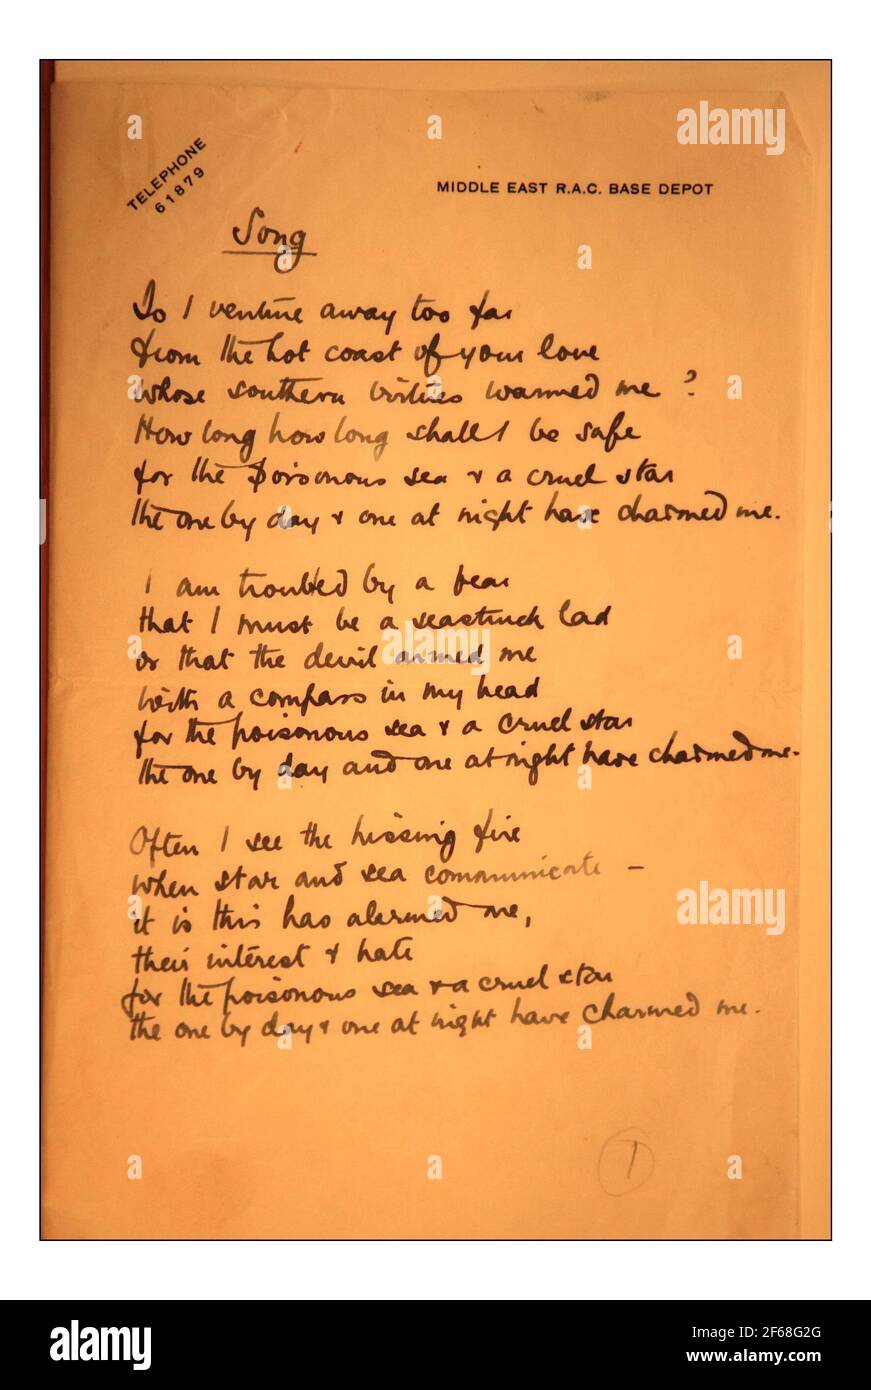 TELEPHONE
61879
MIDDLE EAST R.A.C. BASE DEPOT
Song
Do I venture away too far
from the hot coast of your love
whose southern virtues warmed me?
How long how long shall I be safe
for the poisonous sea & a cruel star
the one by day & one at night have charmed me.
I am troubled by a fear
that I must be a seastruck lad
or that the devil armed me
with a compass in my head
for the poisonous sea & a cruel star
the one by day and one at night have charmed me.
Often I see the hissing fire
when star and sea communicate –
it is this has alarmed me,
their interest & hate
for the poisonous sea & a cruel star
the one by day & one at night have charmed me.
1
alamy
Image ID: 2F68G2G
www.alamy.com